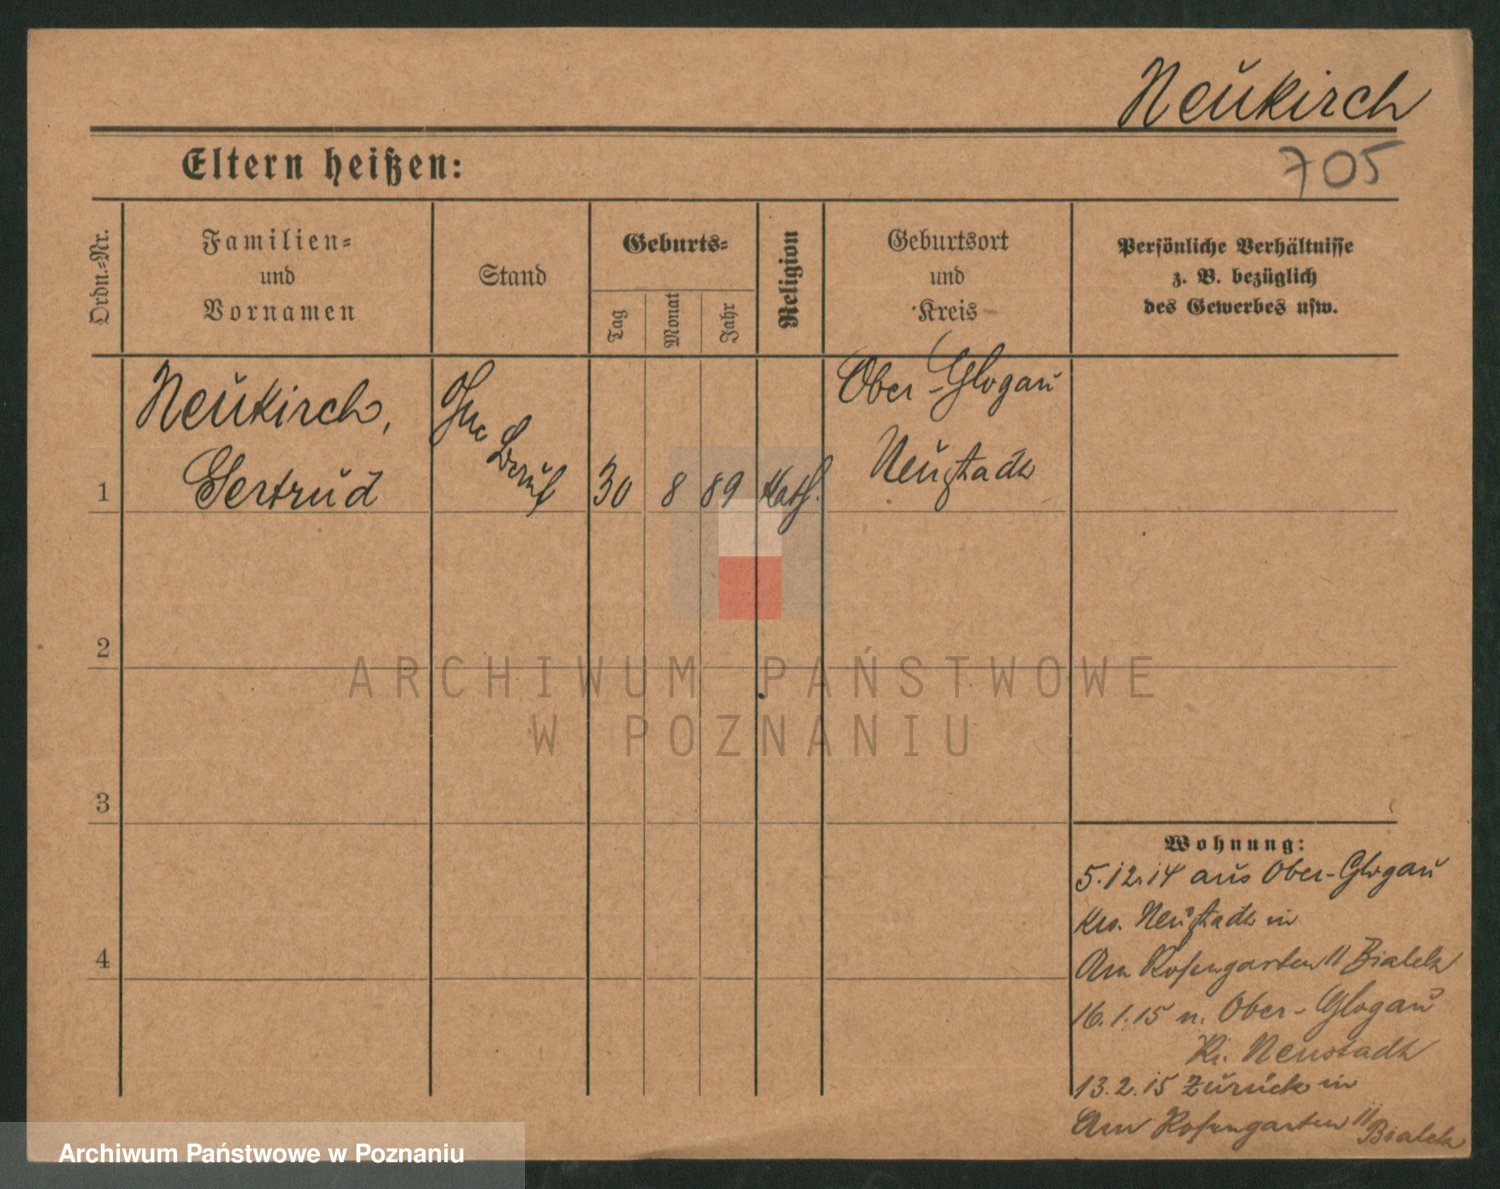 Neukirch
705
Eltern heißen:
Ordn.=Nr.
Familien=
und
Vornamen
Stand
Geburts=
Tag
Monat
Jahr
Religion
Geburtsort
und
Kreis
Persönliche Verhältnisse
z. B. bezüglich
des Gewerbes usw.
1
Neukirch,
Gertrud
Beruf
30
8
89
kath.
Ober-Glogau
Neustadt
2
3
4
Wohnung:
5.12.14 aus Ober-Glogau
Krs. Neustadt in
Am Rosengarten 11 Bialek
16.1.15 n. Ober-Glogau
Kr. Neustadt
13.2.15 zurück in
Am Rosengarten 11 Bialek
ARCHIWUM PAŃSTWOWE
W POZNANIU
Archiwum Państwowe w Poznaniu